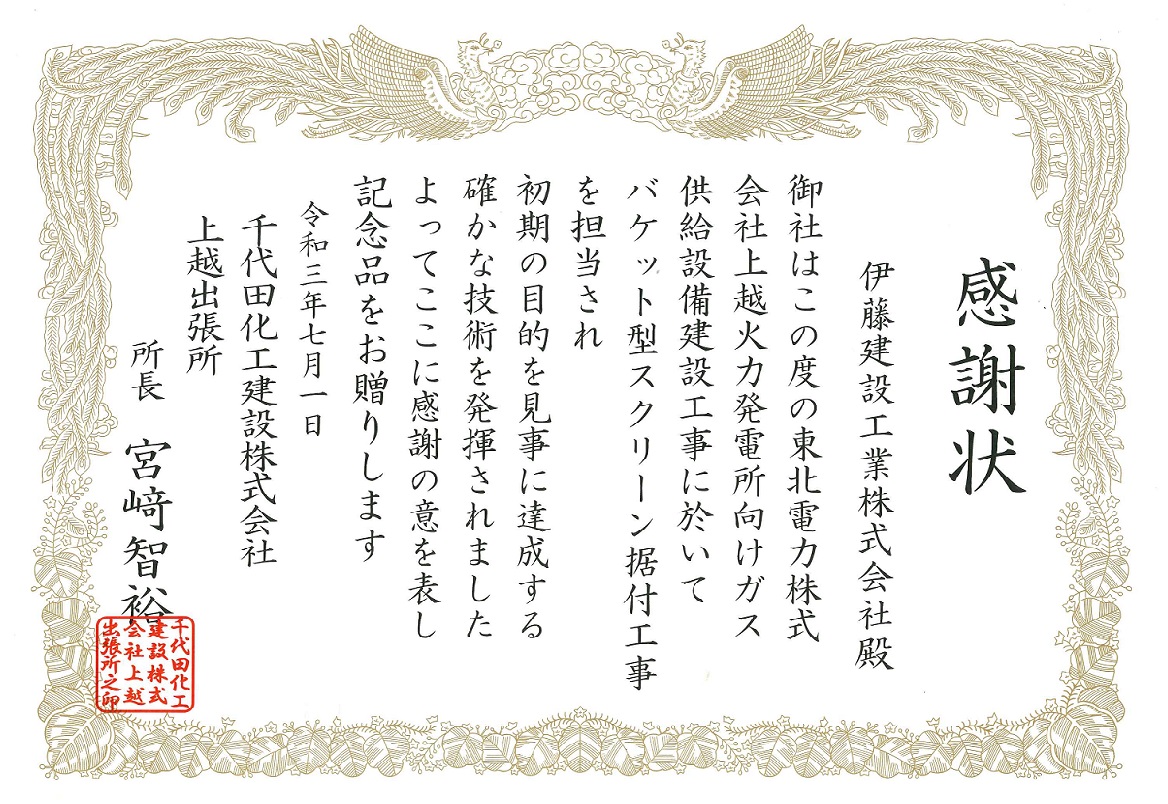 感謝状
伊藤建設工業株式会社殿
御社はこの度の東北電力株式
会社上越火力発電所向けガス
供給設備建設工事に於いて
バケット型スクリーン据付工事
を担当され
初期の目的を見事に達成する
確かな技術を発揮されました
よってここに感謝の意を表し
記念品をお贈りします
令和三年七月一日
千代田化工建設株式会社
上越出張所
所長 宮﨑智裕
千代田化工
建設株式
会社上越
出張所之印